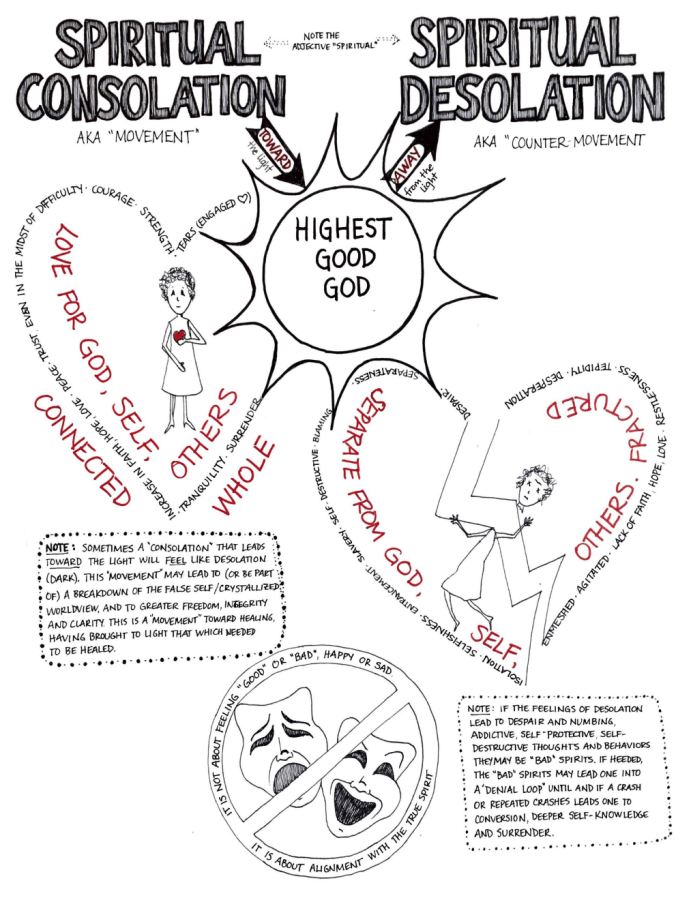 SPIRITUAL
CONSOLATION
AKA "MOVEMENT"
NOTE THE
ADJECTIVE "SPIRITUAL"
SPIRITUAL
DESOLATION
AKA "COUNTER-MOVEMENT
TOWARD
the light
AWAY
from the
light
HIGHEST
GOOD
GOD
INCREASE IN FAITH, HOPE, LOVE · PEACE · TRUST EVEN IN THE MIDST OF DIFFICULTY · COURAGE · STRENGTH · TEARS (ENGAGED ♡)
TRANQUILITY · SURRENDER
LOVE FOR GOD, SELF,
OTHERS
CONNECTED
WHOLE
ISOLATION · SELFISHNESS · ENTRANCEMENT · SLAVERY · SELF-DESTRUCTIVE · BLAMING
SEPARATENESS · DESPAIR ·
SEPARATE FROM GOD,
SELF,
OTHERS. FRACTURED
ENMESHED · AGITATED · LACK OF FAITH, HOPE, LOVE · RESTLESSNESS · TEPIDITY · DESPERATION
NOTE: SOMETIMES A "CONSOLATION" THAT LEADS
TOWARD THE LIGHT WILL FEEL LIKE DESOLATION
(DARK). THIS "MOVEMENT" MAY LEAD TO (OR BE PART
OF) A BREAKDOWN OF THE FALSE SELF/CRYSTALLIZED
WORLDVIEW, AND TO GREATER FREEDOM, INTEGRITY
AND CLARITY. THIS IS A "MOVEMENT" TOWARD HEALING,
HAVING BROUGHT TO LIGHT THAT WHICH NEEDED
TO BE HEALED.
IT IS NOT ABOUT FEELING "GOOD" OR "BAD", HAPPY OR SAD.
IT IS ABOUT ALIGNMENT WITH THE TRUE SPIRIT
NOTE: IF THE FEELINGS OF DESOLATION
LEAD TO DESPAIR AND NUMBING,
ADDICTIVE, SELF-PROTECTIVE, SELF-
DESTRUCTIVE THOUGHTS AND BEHAVIORS
THEY MAY BE "BAD" SPIRITS. IF HEEDED,
THE "BAD" SPIRITS MAY LEAD ONE INTO
A "DENIAL LOOP" UNTIL AND IF A CRASH
OR REPEATED CRASHES LEADS ONE TO
CONVERSION, DEEPER SELF-KNOWLEDGE
AND SURRENDER.